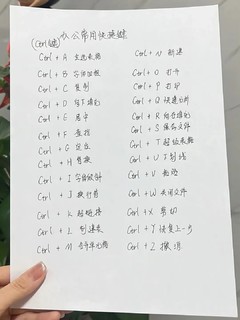 (Ctrl键) 办公常用快捷键
Ctrl + A 全选表格
Ctrl + B 字体加粗
Ctrl + C 复制
Ctrl + D 向下填充
Ctrl + E 居中
Ctrl + F 查找
Ctrl + G 定位
Ctrl + H 替换
Ctrl + I 字体倾斜
Ctrl + J 换行符
Ctrl + K 超链接
Ctrl + L 创建表
Ctrl + M 合并单元格
Ctrl + N 新建
Ctrl + O 打开
Ctrl + P 打印
Ctrl + Q 快速分析
Ctrl + R 向右填充
Ctrl + S 保存文件
Ctrl + T 超级表格
Ctrl + U 下划线
Ctrl + V 粘贴
Ctrl + W 关闭文件
Ctrl + X 剪切
Ctrl + Y 恢复上一步
Ctrl + Z 撤消